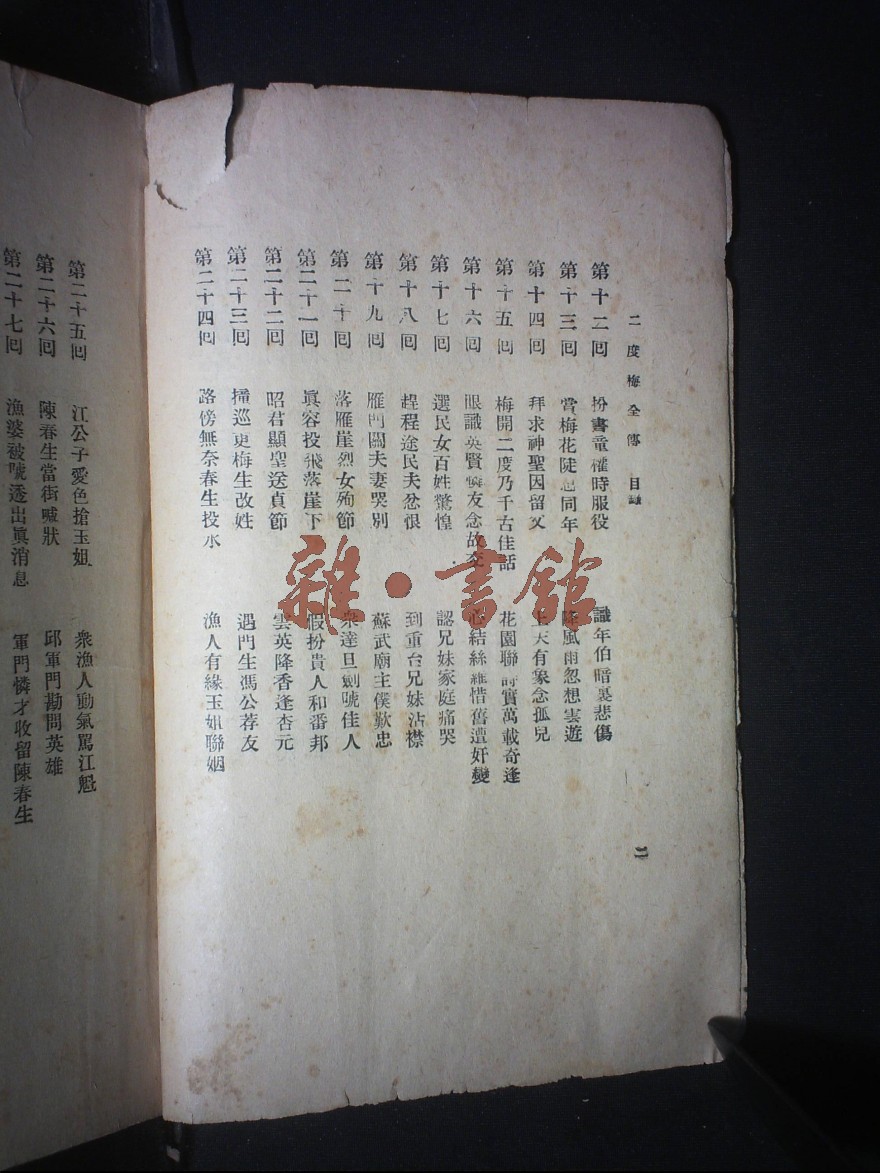 二度梅全傳 目錄 二
第十二回 扮書童權時服役 識年伯暗裏悲傷
第十三回 賞梅花陡 同年 降風雨忽想雲遊
第十四回 拜求神聖因留 天有象念孤兒
第十五回 梅開二度乃千古佳話 花園聯詩實萬載奇逢
第十六回 眼識英賢憐友念故交 心結絲蘿惜舊遭奸變
第十七回 選民女百姓驚惶 認兄妹家庭痛哭
第十八回 趕程途民夫忿恨 到重台兄妹沾襟
第十九回 雁門關夫妻哭別 蘇武廟主僕歎忠
第二十回 落雁崖烈女殉節 衆達旦劍唬佳人
第二十一回 眞容投飛落崖下 假扮貴人和番邦
第二十二回 昭君顯聖送貞節 雲英降香逢杏元
第二十三回 撞巡更梅生改姓 遇門生馮公荐友
第二十四回 路傍無奈春生投水 漁人有緣玉姐聯姻
第二十五回 江公子愛色搶玉姐 衆漁人動氣罵江魁
第二十六回 陳春生當街喊狀 邱軍門勘問英雄
第二十七回 漁婆被唬透出眞消息 軍門憐才收留陳春生
雜·書館